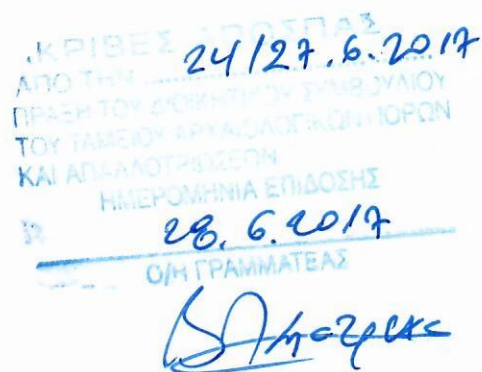 ΑΚΡΙΒΕΣ ΑΠΟΣΠΑΣ
ΑΠΟ ΤΗΝ 24/27.6.2017
ΠΡΑΞΗ ΤΟΥ ΔΙΟΙΚΗΤΙΚΟΥ ΣΥΜΒΟΥΛΙΟΥ
ΤΟΥ ΤΑΜΕΙΟΥ ΑΡΧΑΙΟΛΟΓΙΚΩΝ ΠΟΡΩΝ
ΚΑΙ ΑΠΑΛΛΟΤΡΙΩΣΕΩΝ
ΗΜΕΡΟΜΗΝΙΑ ΕΠΙΔΟΣΗΣ
28.6.2017
Ο/Η ΓΡΑΜΜΑΤΕΑΣ